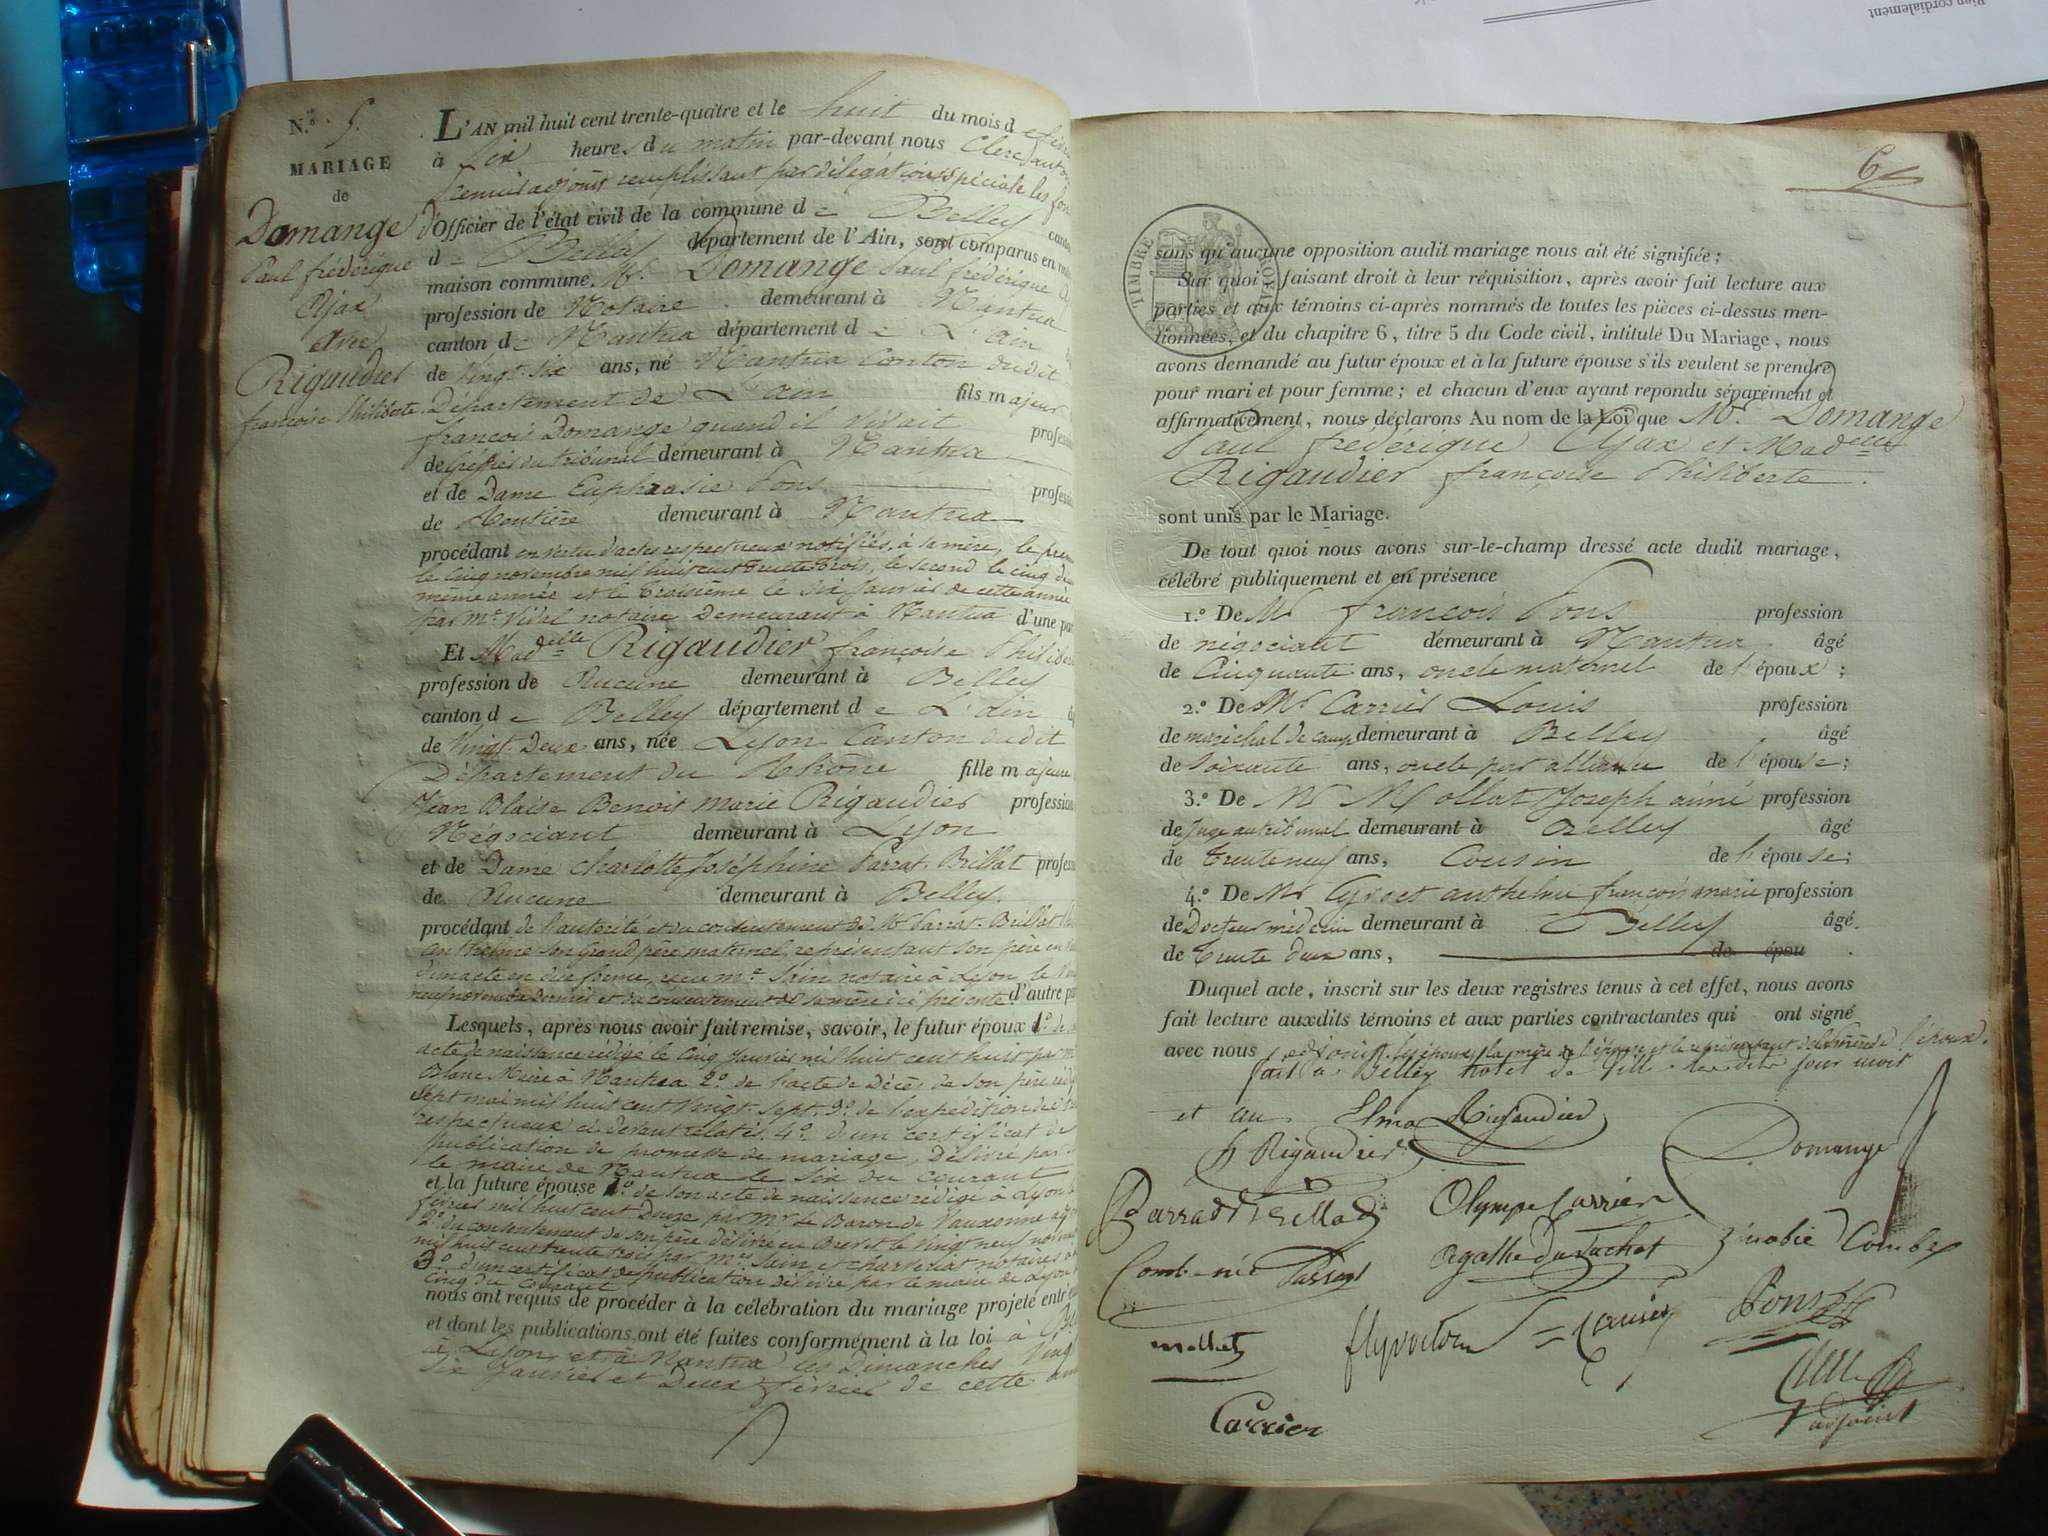 Bien cordialement
N.º 5.
MARIAGE
de
Domange
Paul frédérique
Ajax
avec
Rigaudier
françoise Philiberte.
L'AN mil huit cent trente-quatre et le huit du mois d
à six heures du matin par-devant nous Clerc
premier adjoint remplissant par délégation spéciale les
d'Officier de l'état civil de la commune de Belley
d Belley département de l'Ain, sont comparus en
maison commune, Mr. Domange Paul frédérique
profession de Notaire demeurant à Nantua
canton de Nantua département de L'ain
de Vingt-six ans, né Nantua Canton dudit
Département de L'ain fils majeur
françois Domange quand il vivait
de Greffier du tribunal demeurant à Nantua
et de Dame Euphrasie Pons
de Rentière demeurant à Nantua
procédant en vertu d'actes respectueux notifiés, à sa mère, le
le Cinq novembre mil huit cent trente trois, le second le cinq
même année et le troisième le six Janvier de cette année
par Me Vidal notaire Demeurant à Nantua d'une
Et Madelle Rigaudier françoise
profession de Aucune demeurant à Belley
canton de Belley département de L'ain
de Vingt-Deux ans, née Lyon Canton dudit
Département du Rhône fille majeure
Jean Blaise Benoit Marie Rigaudier profession
Négociant demeurant à Lyon
et de Dame Charlotte Joséphine Parrat-Brillat
de Aucune demeurant à Belley.
procédant de l'autorité et du consentement de Mr Parrat-Brillat
anthelme son grand père maternel, représentant son père en
d'un acte en due forme, reçu Me Sain notaire à Lyon, le
neuf novembre dernier et du consentement de sa mère ici présente d'autre
Lesquels, après nous avoir fait remise, savoir, le futur époux 1º de
acte de naissance rédigé le Cinq Janvier mil huit cent huit par
Blanc Maire à Nantua 2º de l'acte de Décès de son père
sept mai mil huit cent vingt-sept. 3º de l'expédition des
respectueux ci-devant relatés. 4º d'un certificat de
publication de promesse de mariage, Délivré par
le maire de Nantua le six du courant
et la future épouse 1º de son acte de naissance rédigé à Lyon
février mil huit cent Douze par Mr le Baron de Vauxonne
2º du consentement de son père délivré en Brevet le vingt neuf
mil huit cent trente trois par Mes Sain et notaires
3º d'un certificat de publication délivré par le maire de Lyon
cinq du Courant
nous ont requis de procéder à la célébration du mariage projeté
et dont les publications ont été faites conformément à la loi à
à Lyon, et à Nantua les Dimanches Vingt
six Janvier et Deux février de cette
6
TIMBRE ROYAL
sans qu'aucune opposition audit mariage nous ait été signifiée;
Sur quoi, faisant droit à leur réquisition, après avoir fait lecture aux
parties et aux témoins ci-après nommés de toutes les pièces ci-dessus men-
tionnées, et du chapitre 6, titre 5 du Code civil, intitulé Du Mariage, nous
avons demandé au futur époux et à la future épouse s'ils veulent se prendre
pour mari et pour femme; et chacun d'eux ayant repondu séparément et
affirmativement, nous déclarons Au nom de la Loi que Mr. Domange
Paul frédérique Ajax et Madelle
Rigaudier françoise Philiberte.
sont unis par le Mariage.
De tout quoi nous avons sur-le-champ dressé acte dudit mariage,
célébré publiquement et en présence
1.º De Mr françois Pons profession
de négociant demeurant à Nantua âgé
de Cinquante ans, oncle maternel de l'époux;
2.º De Mr Carrier Louis profession
de maréchal de camp demeurant à Belley âgé
de Soixante ans, oncle par alliance de l'épouse;
3.º De Mr Mollat Joseph aimé profession
de Juge au tribunal demeurant à Belley âgé
de trente neuf ans, Cousin de l'épouse;
4.º De Mr Gyvoct anthelme françois marie profession
de Docteur médecin demeurant à Belley âgé
de trente deux ans, de épou
Duquel acte, inscrit sur les deux registres tenus à cet effet, nous avons
fait lecture auxdits témoins et aux parties contractantes qui ont signé
avec nous adjoint, les époux, la mère de l'épouse et le représentant du père de l'épouse.
fait à Belley hôtel de Ville les dits jour mois
et an Rigaudier
Rigaudier Domange
Parrat Brillat Olympe Carrier
Combe née Passerat Agathe Dutachet Zénobie Combe
mollat Pons
Carrier adjoint